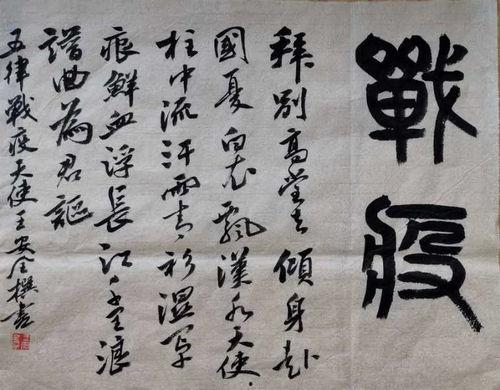 戰疫
拜别高堂去傾身赴
國憂白衣飄漢水天使
柱中流汗雨青衫濕罩
痕鮮血浮長江千里浪
譜曲為君謳
五律戰疫天使王安全撰書